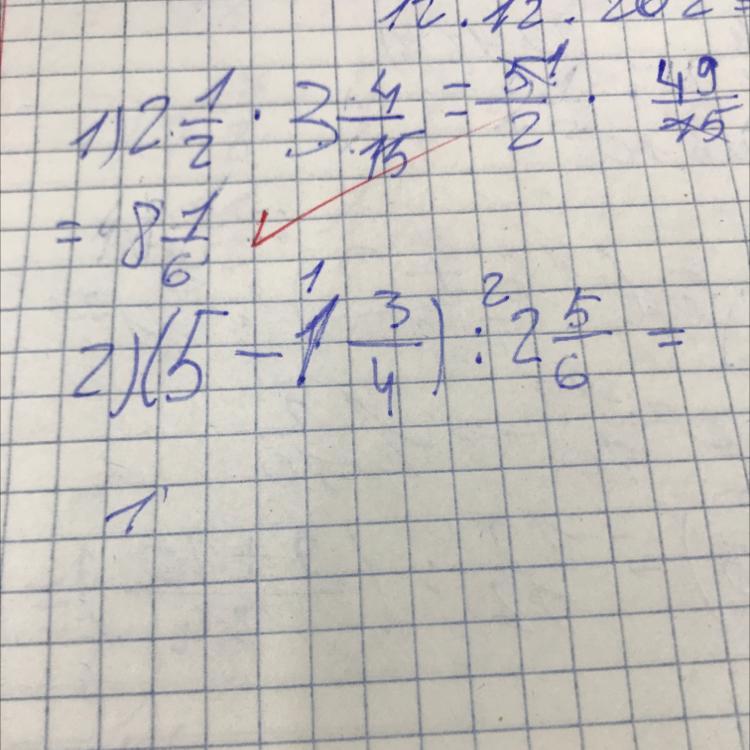 12.12.202
1) 2 1/2 · 3 4/15 = 5 1/2 · 49/15
= 8 1/6
2) (5 - 1 1 3/4) : 2 2 5/6 =
1